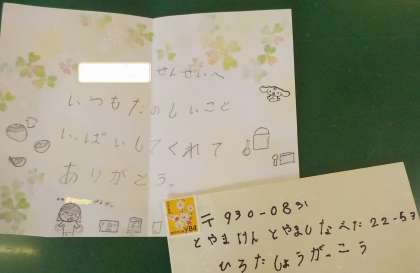 せんせいへ
いつもたのしいこと
いっぱいしてくれて
ありがとう。
〒930-0831
とやまけんとやましなべた22-53
ひろたしょうがっこう
84